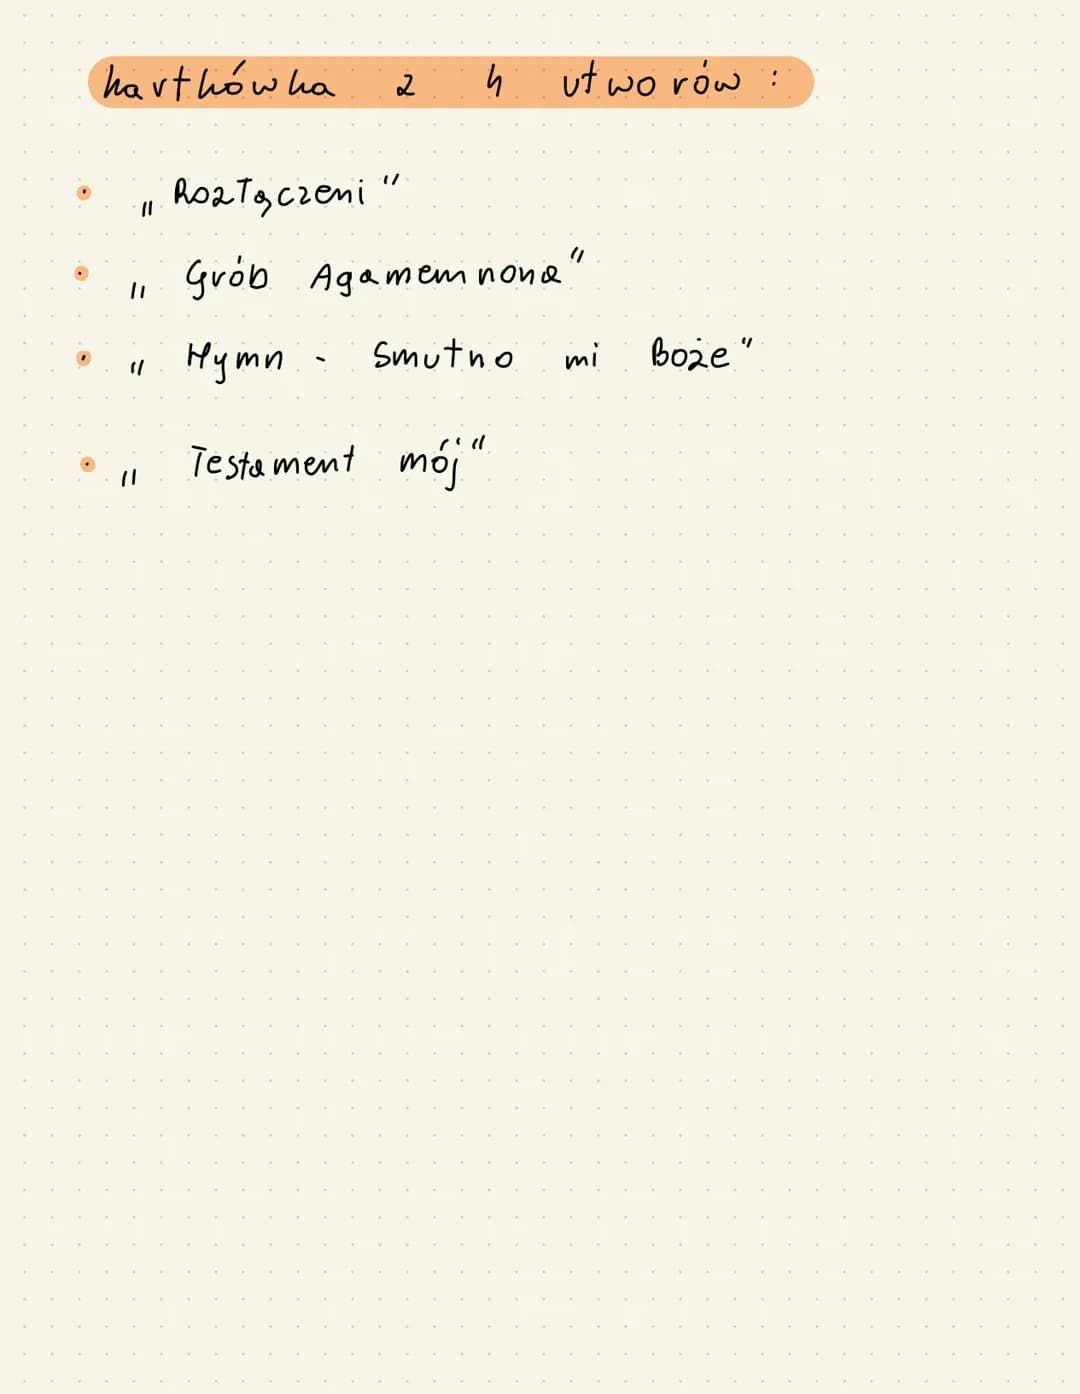 kartkówka z 4 utworów :
• „Rozłączeni"
• „Grób Agamemnona"
• „Hymn - Smutno mi Boże"
• „Testament mój"